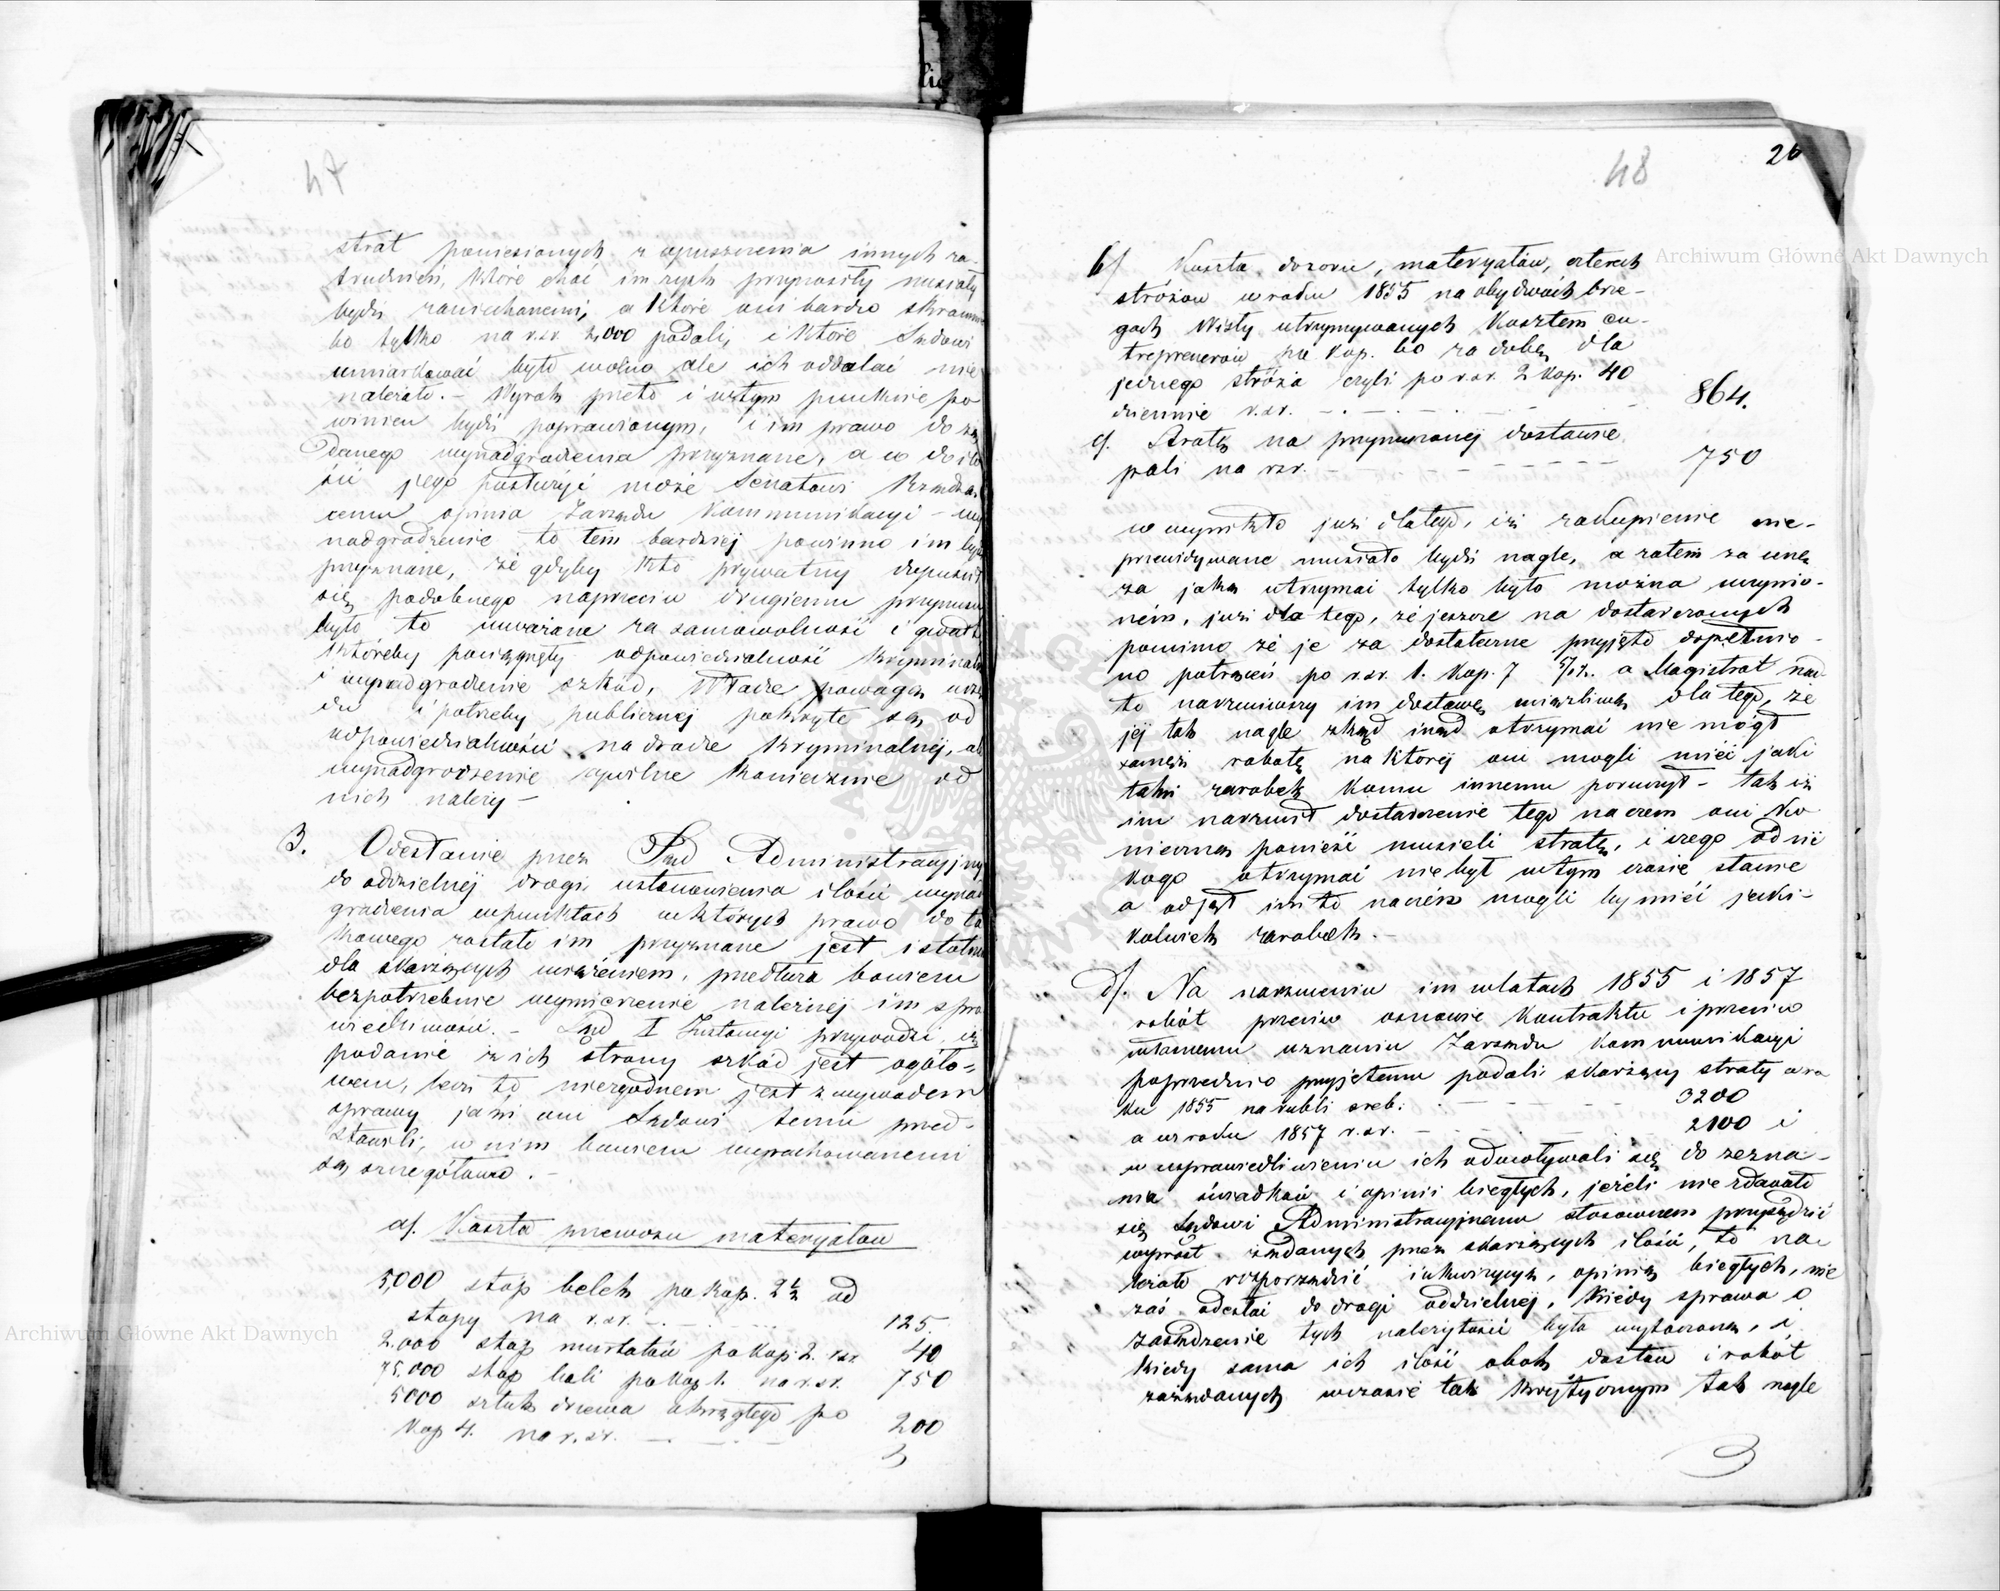 47
strat poniesionych z opuszczenia innych za-
trudnień, które choć im zysk przynosiły musiały
bydź zaniechanemi, a które oni bardzo skromnie
bo tylko na r.sr. 2,000 podali, i które Sądowi
umiarkować było wolno ale ich oddalać nie
należało. – Wyrok przeto i w tym punkcie po
winien bydź poprawionym, i im prawo do żą
danego wynadgrodzenia przyznane, a co do ilo
ści jego posłużyć może Senatowi Rządzą
cemu opinia Zarządu Kommunikacyi – wy
nadgrodzenie to tém bardziej powinno im bydź
przyznane, że gdyby kto prywatny dopuścił
się podobnego naprzeciw drugiemu przymusu
było to uważane za samowolność i gwałt
któreby pociągnęły odpowiedzialność kryminalną
i wynadgrodzenie szkód, Władze powagą urzę
du i potrzeby publicznej pokryte są od
odpowiedzialności na drodze kryminalnéj, ale
wynadgrodzenie cywilne koniecznie od
nich należy –
3. Odesłanie przez Sąd Administracyjny
do oddzielnéj drogi ustanowienia ilości wyna
grodzenia w punktach w których prawo do ta
kowego zostało im przyznane jest istotném
dla skarżących uciążeniem, przedłuża bowiem
bezpotrzebnie wymierzenie należnéj im spra
wiedliwości. – Sąd I Instancyi przywodzi, iż
podanie z ich strony szkód jest ogóło-
wem, lecz to niezgodnem jest z wywodem
sprawy jaki oni Sądowi temu przed-
stawili, w nim bowiem wyrachowanemi
są szczegółowo. –
a/. Koszta przewozu materyałów
5,000 stóp belek po kop. 2½ od
stopy na r.sr. – . – . – 125.
2.000 stóp murłatów po kop. 2. rsr 40
75.000 stóp bali po kop 1. na r.sr. 750
5000 sztuk drzewa okrągłego po
kop 4. na r.sr. – . – . – 200
48
26
b/ Koszta dozoru, materyałów, czterech
stróżów w roku 1855 na obydwóch brze-
gach Wisły utrzymywanych kosztem en-
treprenerów po kop. 60 za dobę dla
jednego stróża czyli po r.sr. 2 kop. 40
dziennie r.sr. – . – . – 864.
c/. Stratę na przymuszonéj dostawie
pali na rsr. – – – – – 750
co wynikło już dlatego, iż zakupienie nie-
przewidywane musiało bydź nagle, a zatém za cenę
za jaką otrzymać tylko było można uczynio-
ném, już dla tego, że jeszcze na dostarczonych
pomimo że je za dostateczne przyjęto dopełnio-
no potrąceń po r.sr. 1. kop. 7 a Magistrat nad
to narzuciwszy im dostawę uciążliwą dla tego, że
jej tak nagle zkąd inąd otrzymać nie mógł
samęż robotę na której oni mogli mieć jaki
taki zarobek komu innemu poruczył – tak iż
im narzucił dostarczenie tego na czem oni ko
niecznę ponieść musieli stratę, i czego od ni
kogo otrzymać nie był w tym czasie stanie
a odjął im to na czém mogli by mieć jaki-
kolwiek zarobek. –
d/. Na narzuceniu im w latach 1855 i 1857
robót przeciw osnowie kontraktu i przeciw
własnemu uznaniu Zarządu Kommunikacyi
poprzednio przyjętemu podali skarżący straty w ro
ku 1855 na rubli sreb: . – – – – 3200
a w roku 1857 r.sr. – – . – . – 2100 i
w usprawiedliwieniu ich odwoływali się do zezna-
nia świadków i opinii biegłych, jeżeli nie zdawało
się Sądowi Administracyjnemu stosownem przysądzić
wprost żądanych przez skarżących ilości, to na-
leżało rozporządzić inkwizycyą, opinią biegłych, nie
zaś odesłać do drogi oddzielnéj, kiedy sprawa o
zasądzenie tych należytości była wytoczona, i
kiedy sama ich ilość obok dostaw i robót
zażądanych w czasie tak krytycznym tak nagle